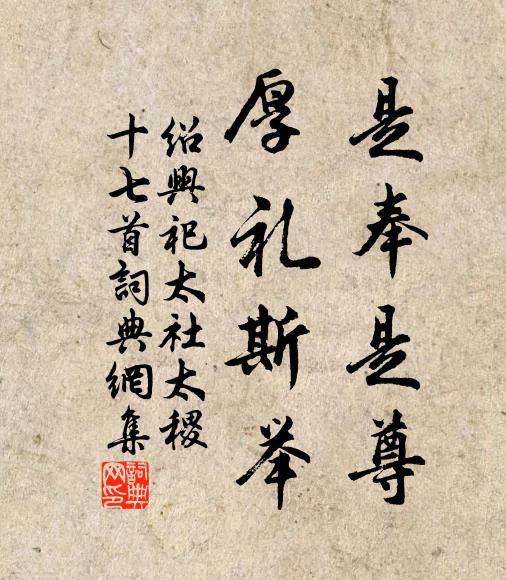 是奉是尊
厚礼斯举
绍興祀太社太稷
十七首詞典網集
詞典網印